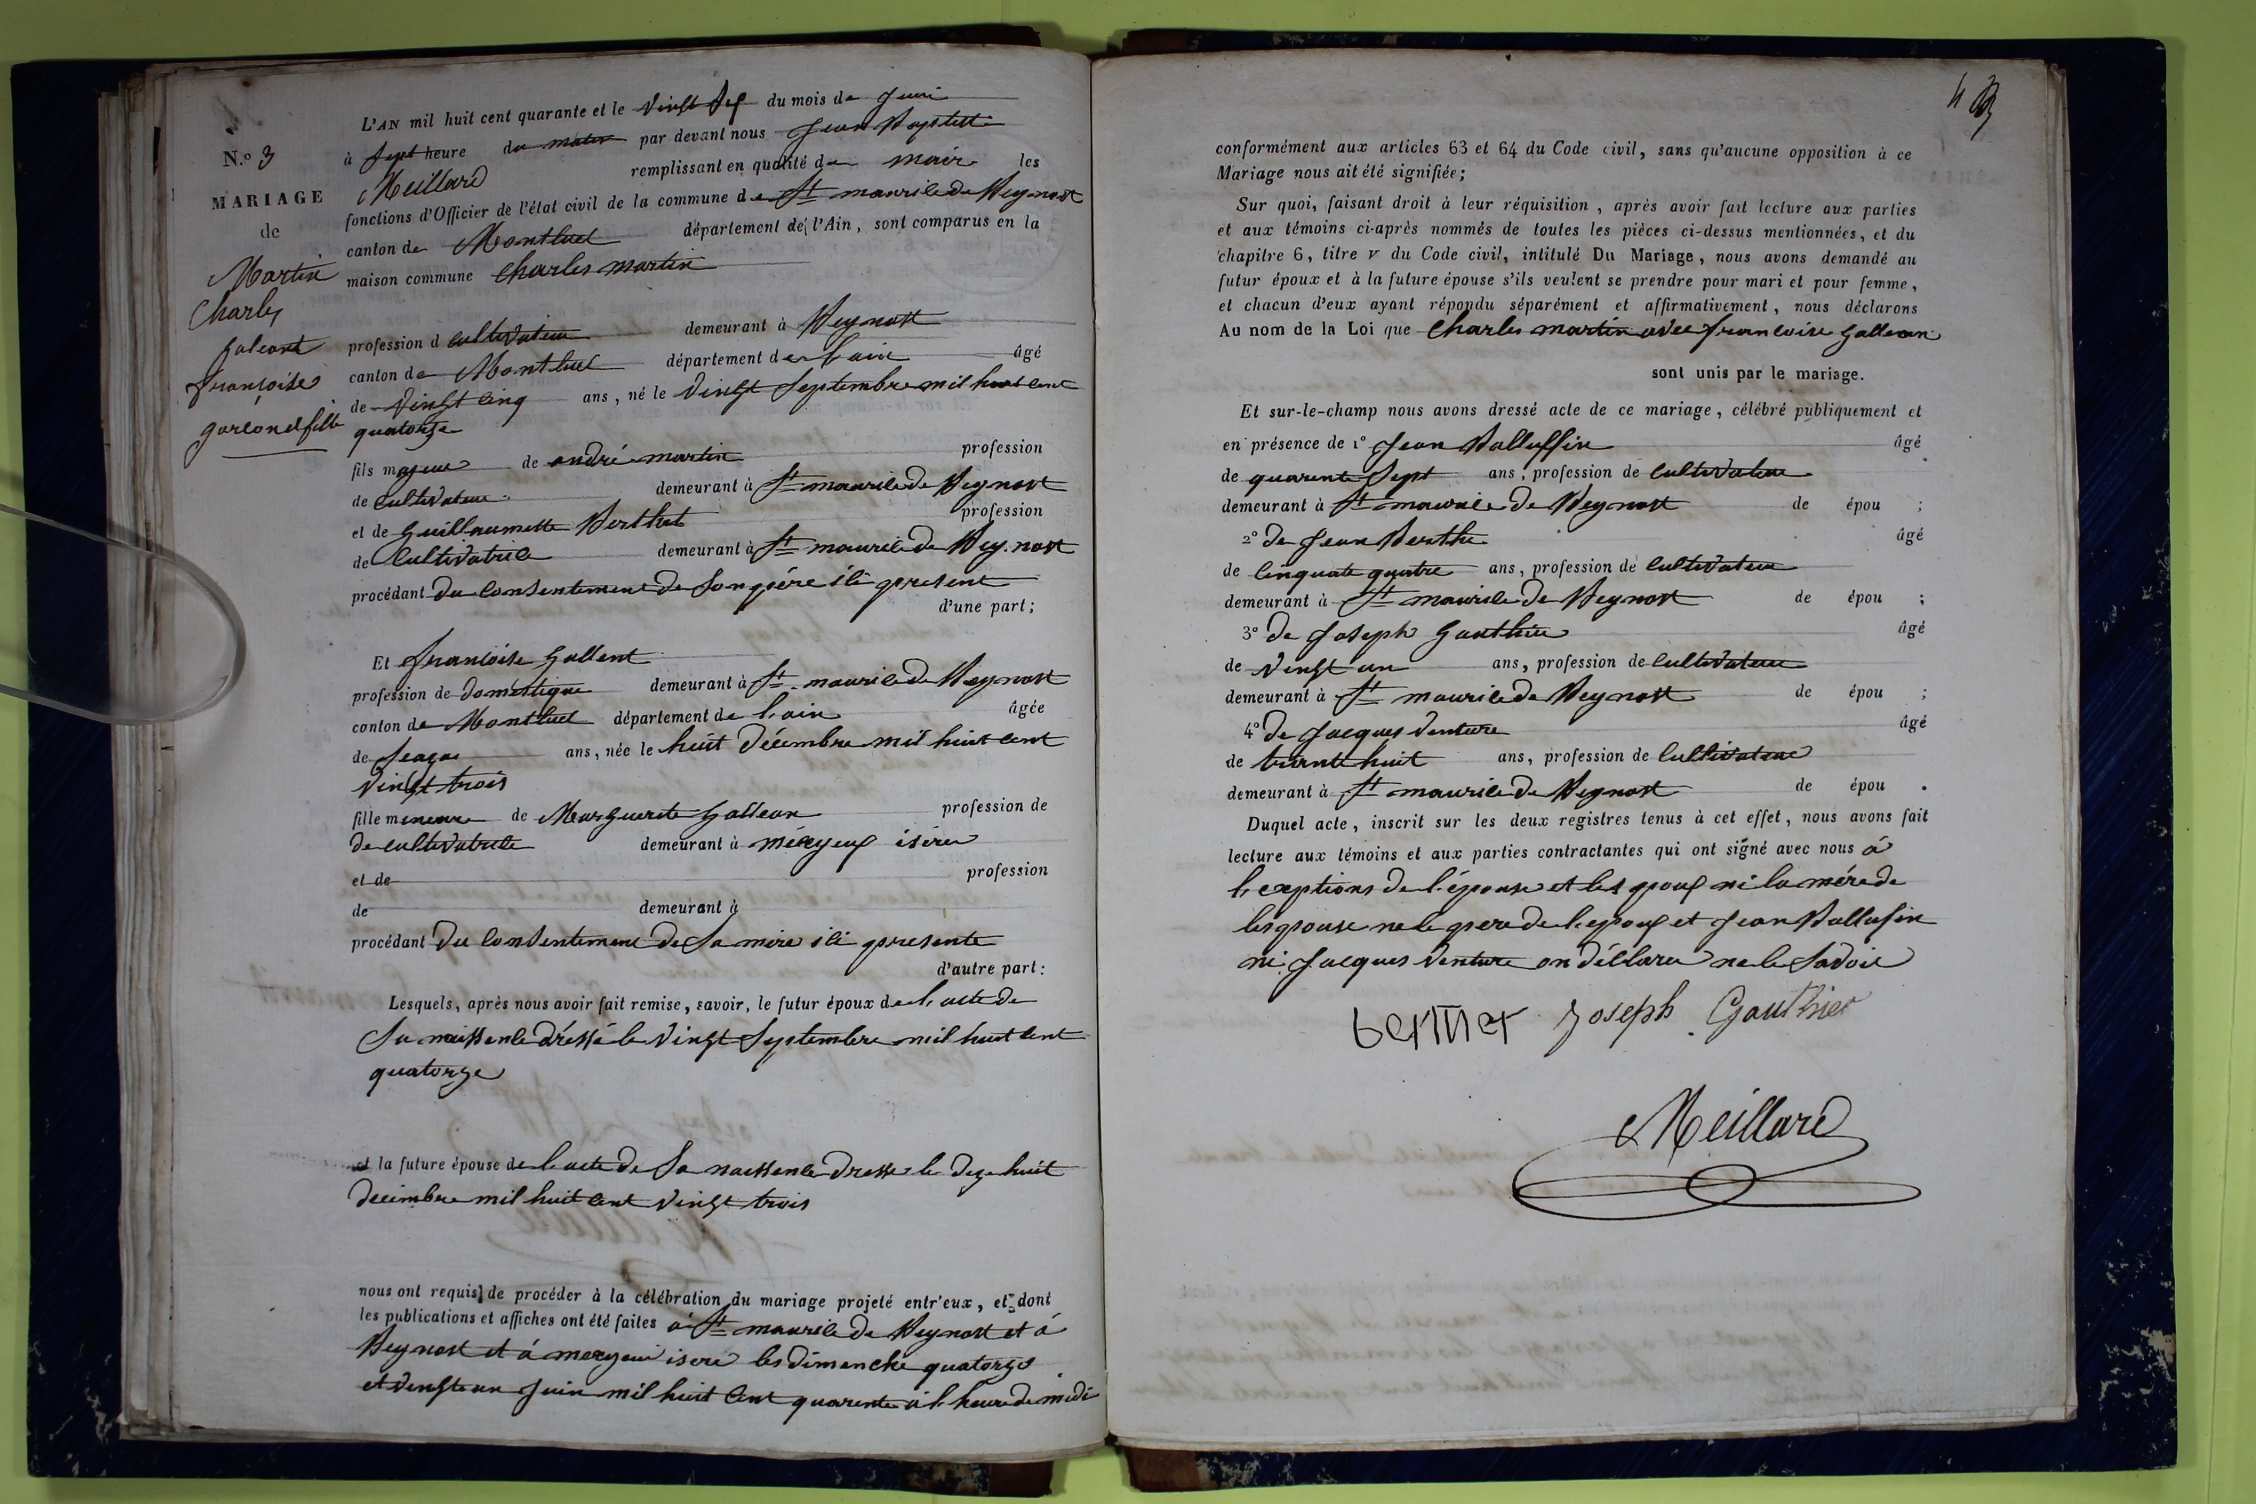 N.º 3
MARIAGE
de
Martin
Charles
galeant
françoise
garçon et fille
L'AN mil huit cent quarante et le vingt du mois de Juin
à sept heure du matin par devant nous Jean Baptiste
Meillard remplissant en qualité de maire les
fonctions d'Officier de l'état civil de la commune de St maurice de Beynost
canton de Montluel département de l'Ain, sont comparus en la
maison commune Charles martin
profession d cultivateur demeurant à Beynost
canton de Montluel département de l'ain âgé
de vingt cinq ans, né le vingt Septembre mil huit cent
quatorze
fils majeur de andré martin profession
de cultivateur demeurant à St maurice de Beynost
et de Guillaumette Berthet profession
de Cultivatrice demeurant à St maurice de Bey.nost
procédant du consentement de Son père ici present
d'une part;
Et françoise Gallent
profession de doméstique demeurant à St maurice de Beynost
canton de Montluel département de l'ain âgée
de Seaze ans, née le huit Décembre mil huit cent
vingt trois
fille meneure de Marguerite Gallean profession de
de cultivatrice demeurant à méryeux isére
et de profession
de demeurant à
procédant du consentement de Sa mère ici presente
d'autre part:
Lesquels, après nous avoir fait remise, savoir, le futur époux de l'acte de
Sa naissence dréssé le vingt Septembre mil huit cent
quatorze
et la future épouse de l'acte de Sa naissence dresse le dize huit
decimbre mil huit cent vingt trois
nous ont requis de procéder à la célébration du mariage projeté entr'eux, et dont
les publications et affiches ont été faites à St maurice de Beynost et à
Beynost et à meryeu isere les dimenche quatorze
et vingt un Juin mil huit cent quarente à l'heure de midi
conformément aux articles 63 et 64 du Code civil, sans qu'aucune opposition à ce
Mariage nous ait été signifiée;
Sur quoi, faisant droit à leur réquisition, après avoir fait lecture aux parties
et aux témoins ci-après nommés de toutes les pièces ci-dessus mentionnées, et du
chapitre 6, titre v du Code civil, intitulé Du Mariage, nous avons demandé au
futur époux et à la future épouse s'ils veulent se prendre pour mari et pour femme,
et chacun d'eux ayant répondu séparément et affirmativement, nous déclarons
Au nom de la Loi que Charles martin avec francoise Gallean
sont unis par le mariage.
Et sur-le-champ nous avons dressé acte de ce mariage, célébré publiquement et
en présence de 1º Jean Balluffin âgé
de quarente Sept ans, profession de cultivateur
demeurant à St mauraice de Beynost de épou ;
2º de Jean Berthe âgé
de cinquate quatre ans, profession de cultivateur
demeurant à St maurice de Beynost de épou ;
3º de Joseph Gauthier âgé
de vingt un ans, profession de cultivateur
demeurant à St maurice de Beynost de épou ;
4º de Jacques venture âgé
de trante huit ans, profession de cultivateur
demeurant à St maurice de Beynost de épou .
Duquel acte, inscrit sur les deux registres tenus à cet effet, nous avons fait
lecture aux témoins et aux parties contractantes qui ont signé avec nous à
l'exeptions de l'épouse et les poux ni la mére de
lespouse ne le pere de l'epoux et Jean Ballufin
ni Jacques venture on déclaré ne le Savoir
berthet Joseph Gauthier
Meillard